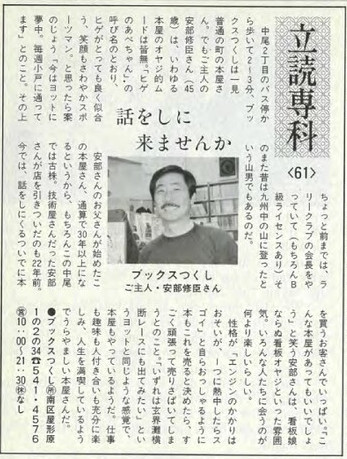 立読専科
〈61〉
話をしに
来ませんか
中尾2丁目のバス停か
ら歩いて2〜3分、ブッ
クスつくしは一見
普通の町の本屋さ
ん。でもご主人の
安部修臣さん(45
歳)は、いわゆる
本屋のオヤジ的ム
ードは皆無。「ヒゲ
のあべちゃん」の
呼び名のとおり、
ヒゲがとっても良く似合
う、笑顔もさわやかスポ
ーツマン。と思ったら案
のじょう「今はヨットに
夢中。毎週小戸に通って
ます」とのこと。その上
ちょっと前までは、ラ
リークラブの会長をや
っていて(もちろんB
級ライセンスあり)そ
のまた昔は九州中の山に登ったと
いう山男でもあるのだ。
ブックスつくし
ご主人・安部修臣さん
安部さんのお父さんが始めたこ
の本屋さん、通算で30年以上にな
るというから、もちろんこの中尾
では古株。技術屋さんだった安部
さんが店を引きついだのも22年前。
今では、話をしにくるついでに本
を買うお客さんでいっぱい。「こ
んな本屋があってもいいでしょ
う」と笑う安部さんは、看板娘
ならぬ看板オヤジといった雰囲
気。いろんな人たちに会うのが
何より楽しいらしい。
性格が「エンジンのかかりは
おそいが、1つに熱中したらス
ゴイ」と自らおっしゃるように
本もこれを売ると決めたら、す
ごく頑張って売りさばいてしま
うとのこと。"いずれは玄界灘横
断レースにも出てみたい"とい
うヨットと同じような感覚で、
本屋もやっているようだ。仕事
も趣味も付き合いも充分に楽
しみ、人生を満喫しているよう
でうらやましい本屋さんだ。
●ブックスつくし㊟南区屋形原
1の2の34☎541・4576
㊠10:00〜21:30㊡なし